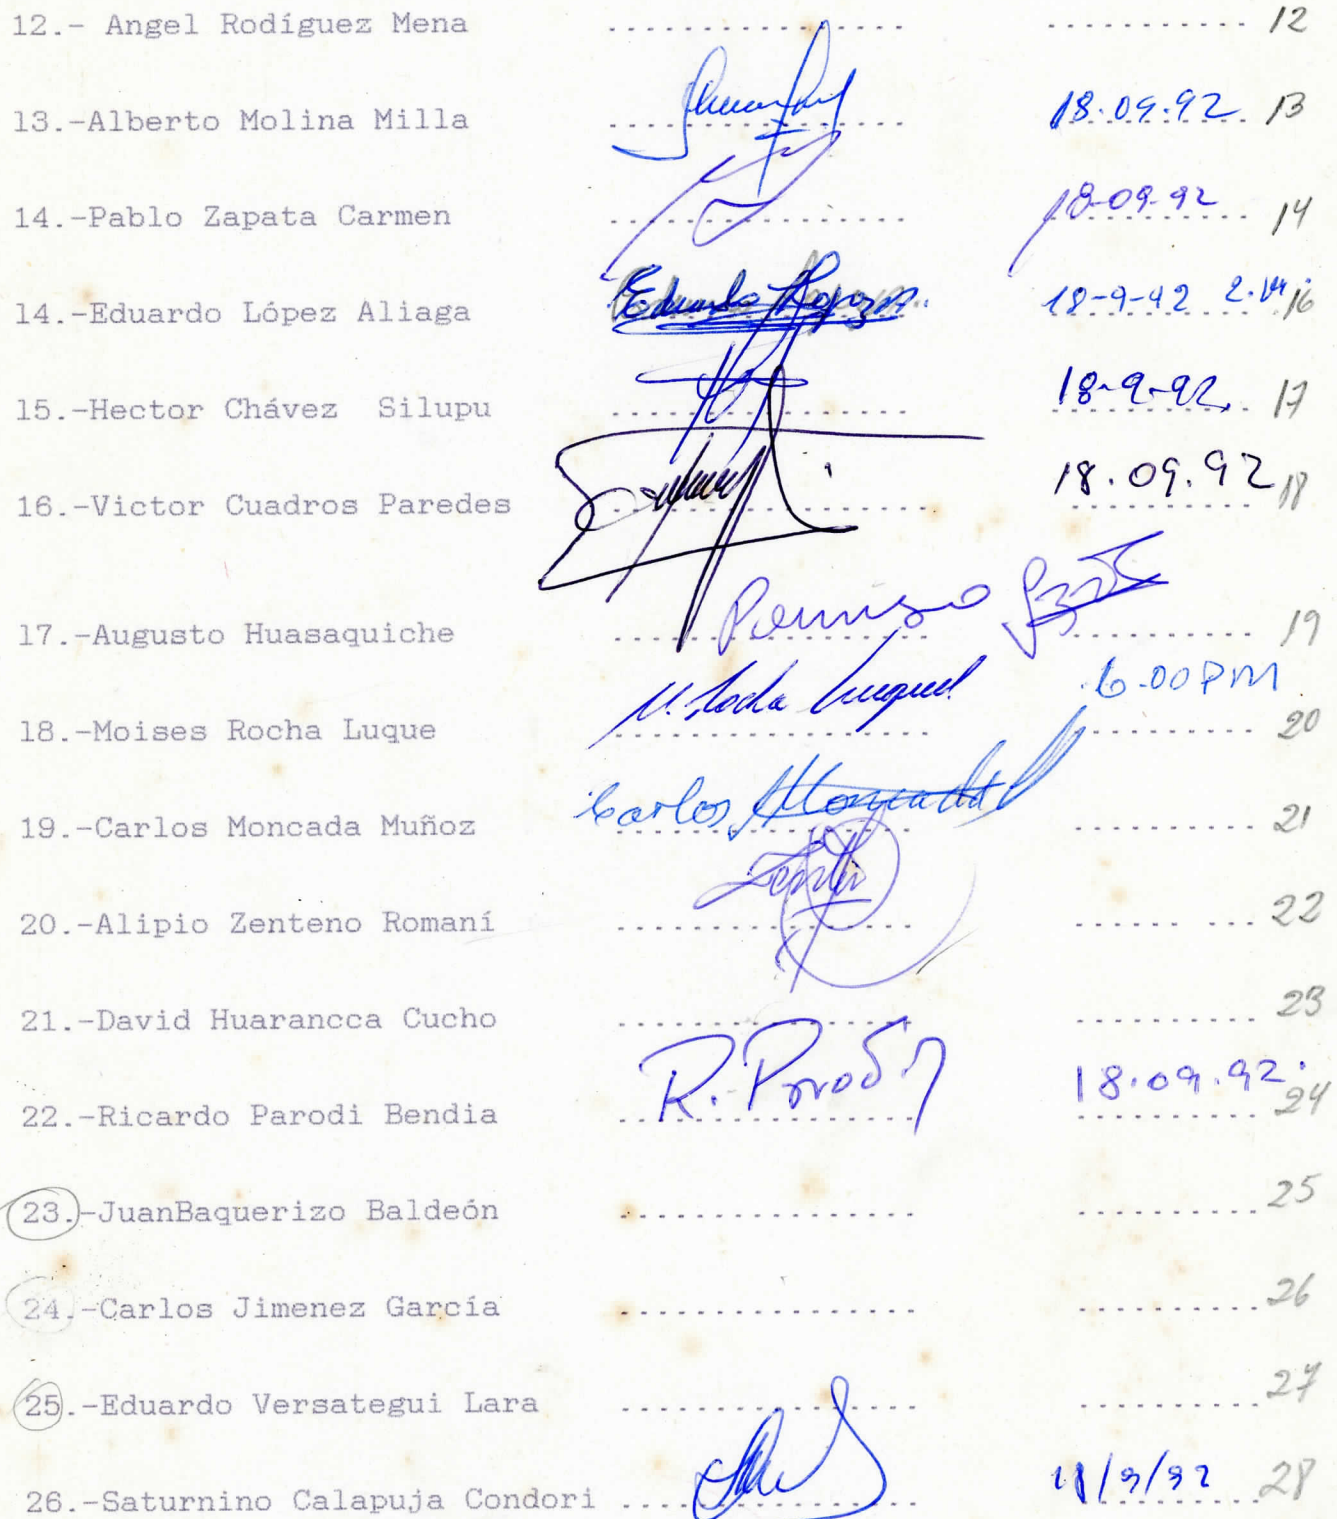 12.- Angel Rodíguez Mena ................ ........... 12
13.-Alberto Molina Milla ................ 18.09.92 13
14.-Pablo Zapata Carmen ................ 18-09-92 14
14.-Eduardo López Aliaga Eduardo 18-9-92 16
15.-Hector Chávez Silupu ................ 18-9-92 17
16.-Victor Cuadros Paredes ................ 18.09.92 18
17.-Augusto Huasaquiche ................ ........... 19
18.-Moises Rocha Luque M. Rocha Luque 6.00 PM 20
19.-Carlos Moncada Muñoz Carlos Moncada ........... 21
20.-Alipio Zenteno Romaní ................ ........... 22
21.-David Huarancca Cucho ................ ........... 23
22.-Ricardo Parodi Bendia R. Parodi 18.09.92. 24
23.-JuanBaquerizo Baldeón ................ ........... 25
24.-Carlos Jimenez García ................ ........... 26
25.-Eduardo Versategui Lara ................ ........... 27
26.-Saturnino Calapuja Condori ................ 18/9/92 28